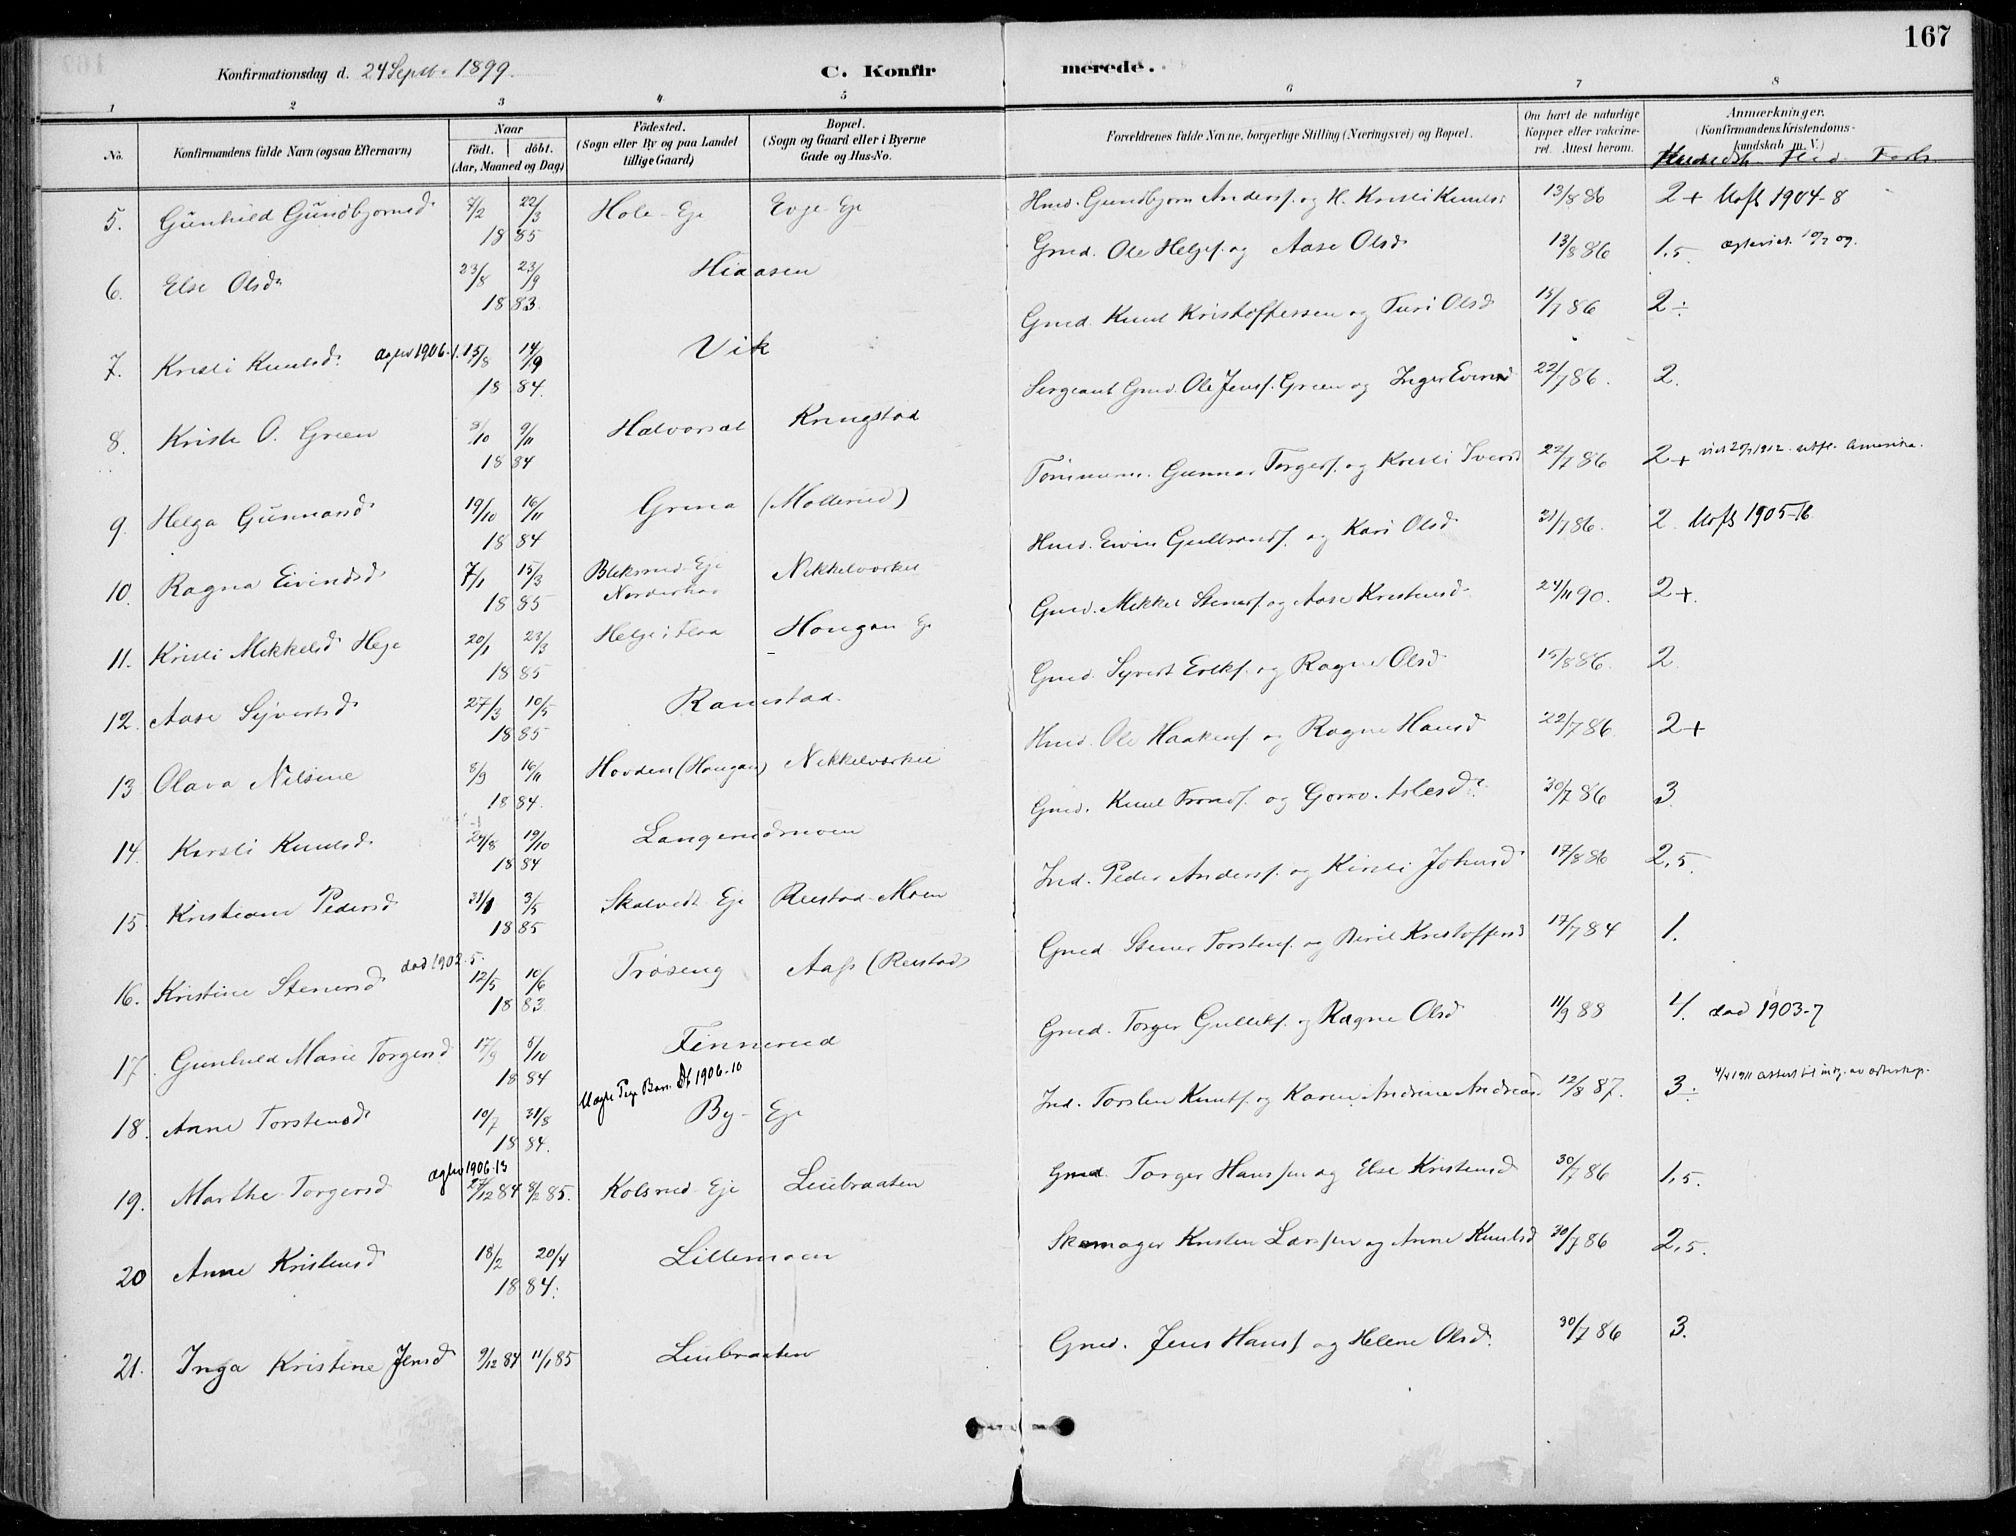 167
Konfirmationsdag d. 24 Septb. 1899. C. Konfirmerede.
1 2 3 4 5 6 7 8
No. Konfirmandens fulde Navn (ogsaa Efternavn) Naar Födt. döbt. (Aar, Maaned og Dag) Födested. (Sogn eller By og paa Landet tillige Gaard) Bopæl. (Sogn og Gaard eller i Byerne Gade og Hus-No. Forældrenes fulde Navne, borgerlige Stilling (Næringsvei) og Bopæl. Om havt de naturlige Kopper eller vakcineret. Attest herom. Anmærkninger. (Konfirmandens Kristendomskundskab m. V.)
5. Gunhild Gundbjørnsd 7/2 22/3 1885 Hole-Eje Evje-Eje Hmd. Gundbjørn Anders. og H. Kristi Knuds 13/8 86 2+ Uofl 1904-8
6. Else Olsd 23/8 23/9 1883. Hiaasen Gmd. Ole Helges. og Aase Olsd 13/8 86 1,5
7. Kristi Knutsd. 15/8 14/9 1884. Vik Gmd. Knut Kristoffersen og Turi Olsd 15/7 86 2÷
8. Kristi O. Green 3/10 9/11 1884 Halvorsøt Kringstad Sergeant Gmd. Ole Jens. Green og Inger Evensd 22/7 86. 2.
9. Helga Gunnarsd 19/10 16/11 1884 Grina (Mollerud) Tömmerm. Gunnar Torgers. og Kristi Iversd 22/7 86 2+ Amerika.
10. Ragna Eivindsd 7/1 15/3 1885 Bleksrud-Eje Norderhov Nikkelværket Hmd. Eivin Gulbrands. og Kari Olsd 31/7 86. 2. Uofl 1905-16
11. Kristi Mikkelsd Hege 20/1 23/3 1885 Helge i Flaa Hougan Eje Gmd. Mikkel Steners. og Aase Kristensd 24/11 90. 2+.
12. Aase Syvertsd 27/3 10/5 1885. Ramstad. Gmd. Syvert Eriks. og Ragne Olsd 15/8 86. 2.
13 Olava Nilsine 8/9 16/11 1884. Hovden (Hougan) Nikkelværket Hmd. Ole Haakens. og Ragne Hansd 22/7 86. 2+
14. Kirsti Knutsd 29/8 19/10 1884 Langerudmoen Gmd. Knut Tronds. og Gorro Aslesd. 30/7 86 3
15. Kristiane Pedersd 31/1 3/5 1885 Skalvedt-Eje Rustad-Moen Ind. Peder Anders. og Kirsti Johnsd 17/8 86 2,5.
16. Kristine Stenersd dod 1902.5. 12/5 10/6 1883 Trøseng Aas (Rustad) Gmd. Stener Torstens. og Beril Kristoffersd 17/7 84 1.
17. Gunhild Marie Torgersd 17/9 5/10 1884 Finnerud Gmd. Torger Gulliks. og Ragne Olsd 11/9 88 4. dod 1903-7
18. Anne Torstensd 10/7 31/8 1884. By-Eje Ind. Torsten Knuts. og Karen Andrine Andreasd 12/8 87. 3÷
19. Marthe Torgersd 27/12 84 8/2 85. Kolsrud-Eje Liebraaten Gmd. Torger Hanssen og Else Kristensd 30/7 86 1,5.
20 Anne Kristensd 18/2 20/4 1884. Lillemoen Skomager Kristen Larssen og Anne Knutsd 30/7 86 2,5.
21. Inga Kristine Jensd 9/12 84 11/1 85 Liebraaten Gmd. Jens Hans. og Helene Olsd. 30/7 86 3.